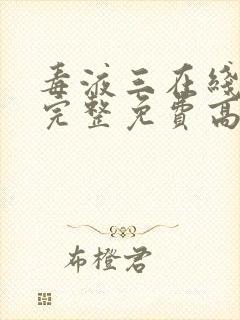 毒液三在綫
完整免費高
布橙君